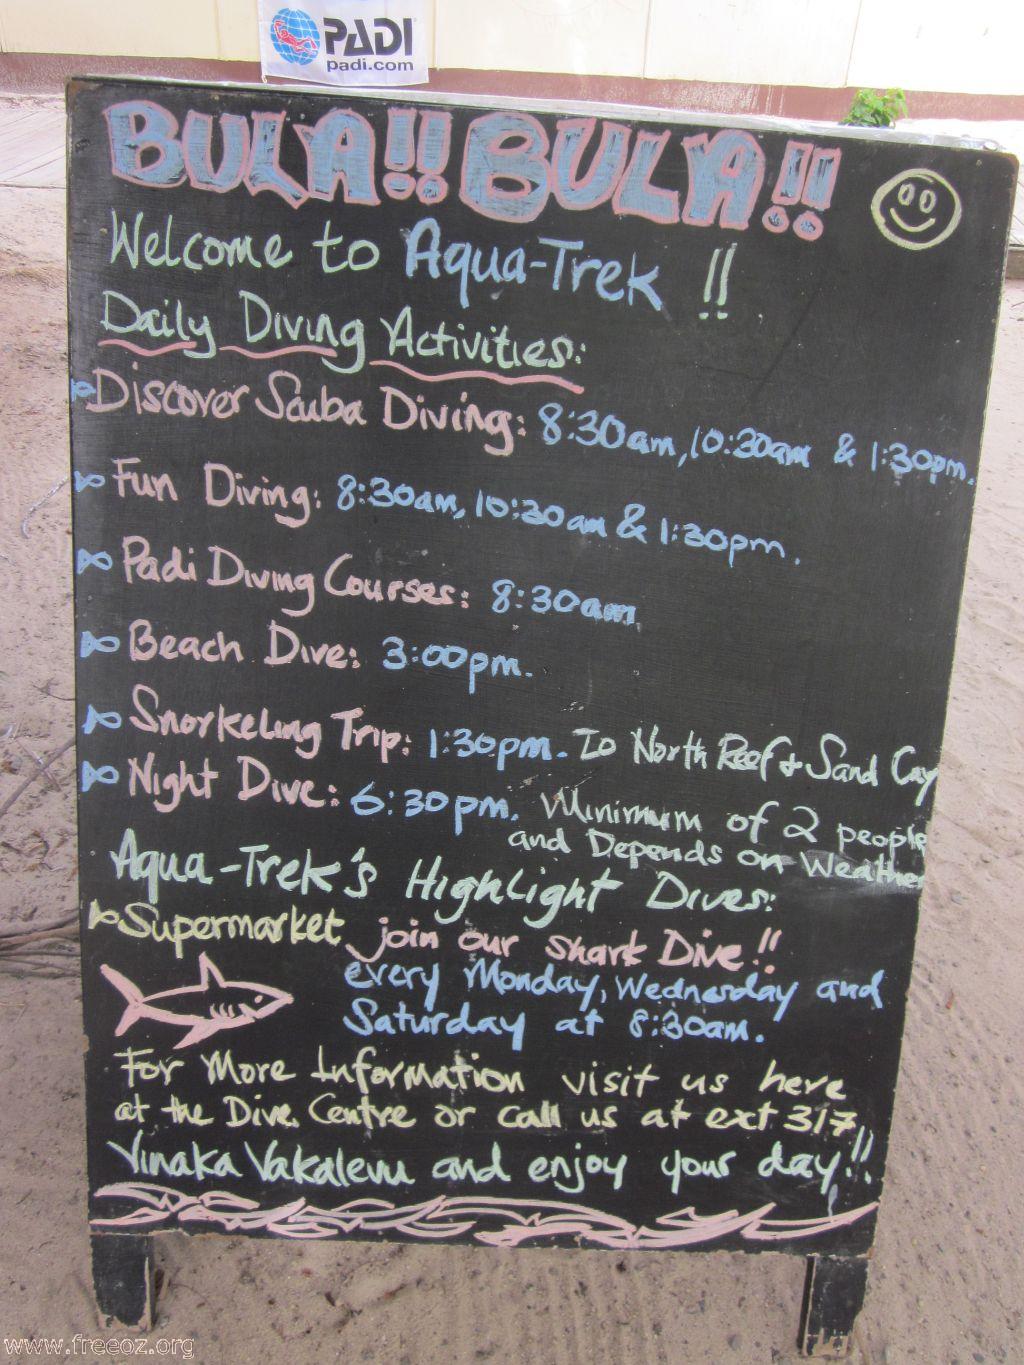 PADI
padi.com
BULA!! BULA!!
Welcome to Aqua-Trek !!
Daily Diving Activities:
Discover Scuba Diving: 8:30am, 10:30am & 1:30pm.
Fun Diving: 8:30am, 10:30am & 1:30pm.
Padi Diving Courses: 8:30am
Beach Dive: 3:00pm.
Snorkeling Trip: 1:30pm. To North Reef & Sand Cay
Night Dive: 6:30pm. Minimum of 2 people
and Depends on Weather
Aqua-Trek's Highlight Dives:
Supermarket, join our shark Dive!!
every Monday, Wednesday and
Saturday at 8:30am.
For More Information visit us here
at the Dive Centre or call us at ext 317
Vinaka Vakalevu and enjoy your day!!
www.freeoz.org